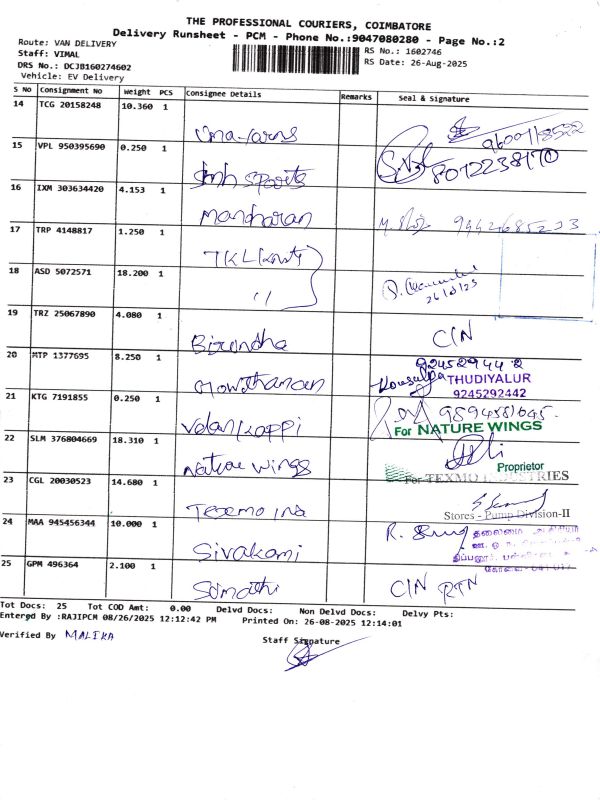 THE PROFESSIONAL COURIERS, COIMBATORE
Delivery Runsheet - PCM - Phone No.:9047080280 - Page No.:2
Route: VAN DELIVERY
Staff: VIMAL
DRS No.: DCJB160274602
Vehicle: EV Delivery
RS No.: 1602746
RS Date: 26-Aug-2025
S No Consignment No Weight PCS Consignee Details Remarks Seal & Signature
14 TCG 20158248 10.360 1
15 VPL 950395690 0.250 1 8012238170
16 IXM 303634420 4.153 1 Manoharan
17 TRP 4148817 1.250 1 TKL
18 ASD 5072571 18.200 1 "
19 TRZ 25067890 4.080 1 Birundha C/N
20 MTP 1377695 8.250 1 Gowthaman 9245294442
THUDIYALUR
9245292442
21 KTG 7191855 0.250 1 Velan Kappi
For NATURE WINGS
22 SLM 376804669 18.310 1 Nature Wings
Proprietor
For TEXMO INDUSTRIES
23 CGL 20030523 14.680 1 Texmo Ind
Stores - Pump Division-II
24 MAA 945456344 10.000 1 Sivakami
தலைமை
25 GPM 496364 2.100 1 Sumathi C/N RTN
Tot Docs: 25 Tot COD Amt: 0.00 Delvd Docs: Non Delvd Docs: Delvy Pts:
Entered By :RAJIPCM 08/26/2025 12:12:42 PM Printed On: 26-08-2025 12:14:01
Verified By MALIKA
Staff Signature